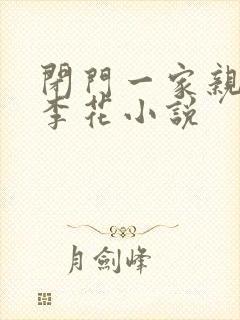 閉門一家親
李花小説
月劍峰